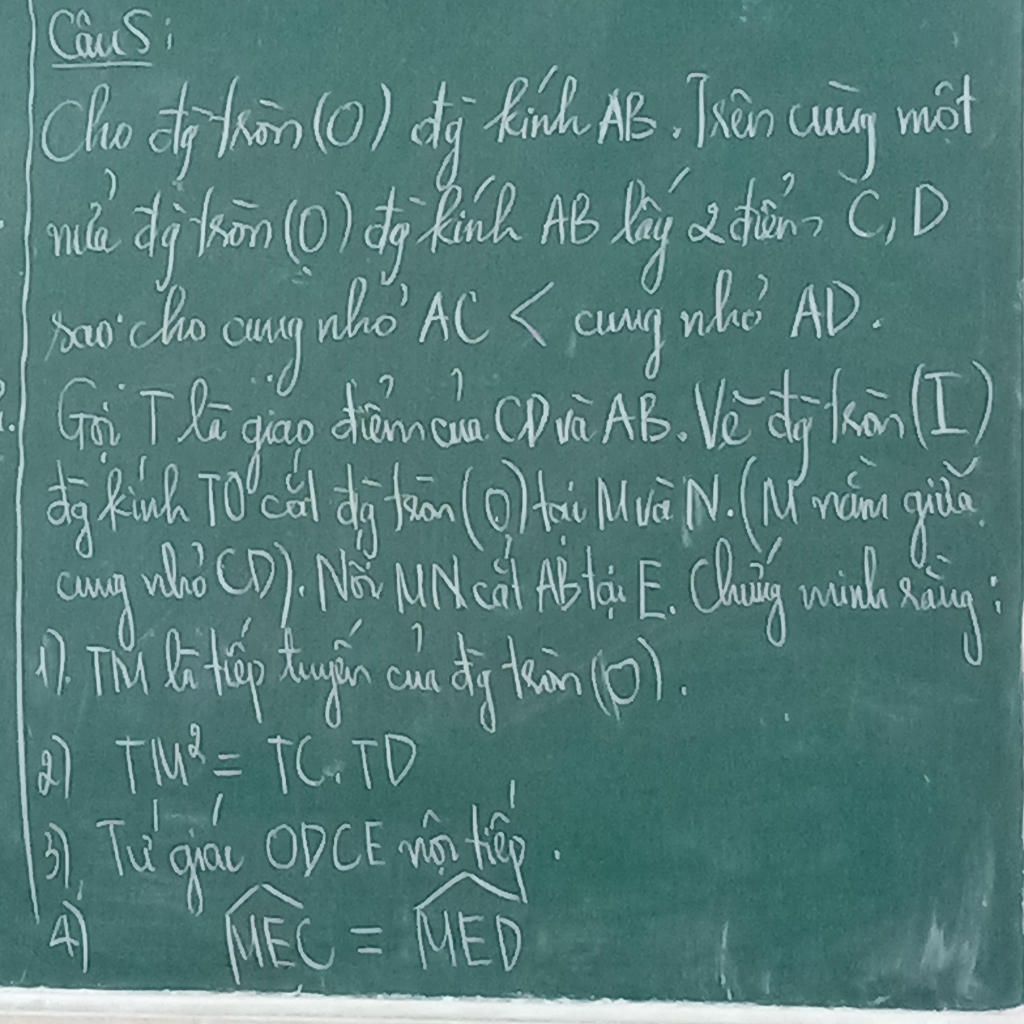 Câu 5:
Cho đg tròn (O) đg kính AB. Trên cùng một
nửa đg tròn (O) đg kính AB lấy 2 điểm C, D
sao cho cung nhỏ AC < cung nhỏ AD.
Gọi T là giao điểm của CD và AB. Vẽ đg tròn (I)
đg kính TO cắt đg tròn (O) tại M và N. (M nằm giữa
cung nhỏ CD). Nối MN cắt AB tại E. Chứng minh rằng:
1). TM là tiếp tuyến của đg tròn (O).
2) TM² = TC.TD
3) Tứ giác ODCE nội tiếp.
4) MEC = MED